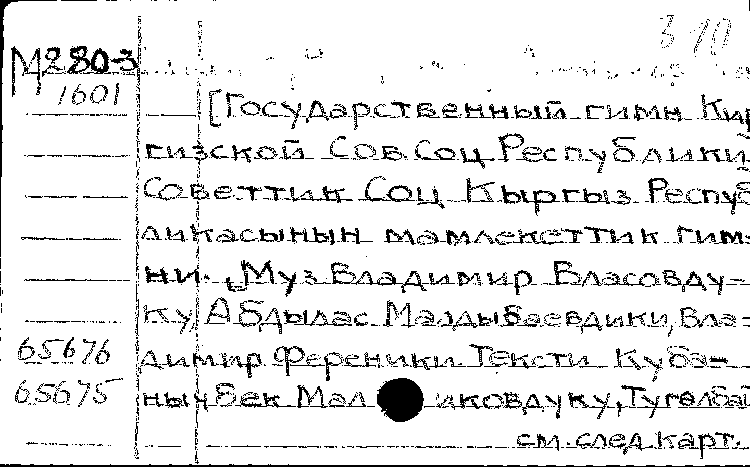 310
М280-3
1601
[Государственный гимн Кир
гизской Сов Соц Республики
Советтик Соц Кыргыз Респуб
ликасынын мамлекеттик гим-
ни. Муз Владимир Власовду-
ку, Абдылас Малдыбаевдики, Вла-
65676 димир Ференики Тексти Куба-
65675 нычбек Мал иковдуку, Тугөлбай
см. след карт.